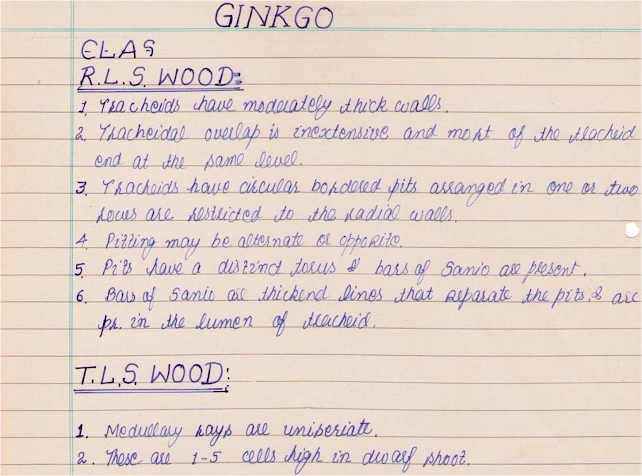 GINKGO
CLAS
R.L.S. WOOD:
1. Tracheids have moderately thick walls.
2 Tracheidal overlap is inextensive and most of the tracheid
end at the same level.
3. Tracheids have circular bordered pits arranged in one or two
rows are restricted to the radial walls.
4. Pitting may be alternate or opposite.
5 Pits have a distinct torus & bars of Sanio are present.
6. Bars of Sanio are thickend lines that separate the pits & are
pr. in the lumen of tracheid.
T.L.S. WOOD:
1. Medullary rays are uniseriate.
2. These are 1-5 cells high in dwarf shoot.